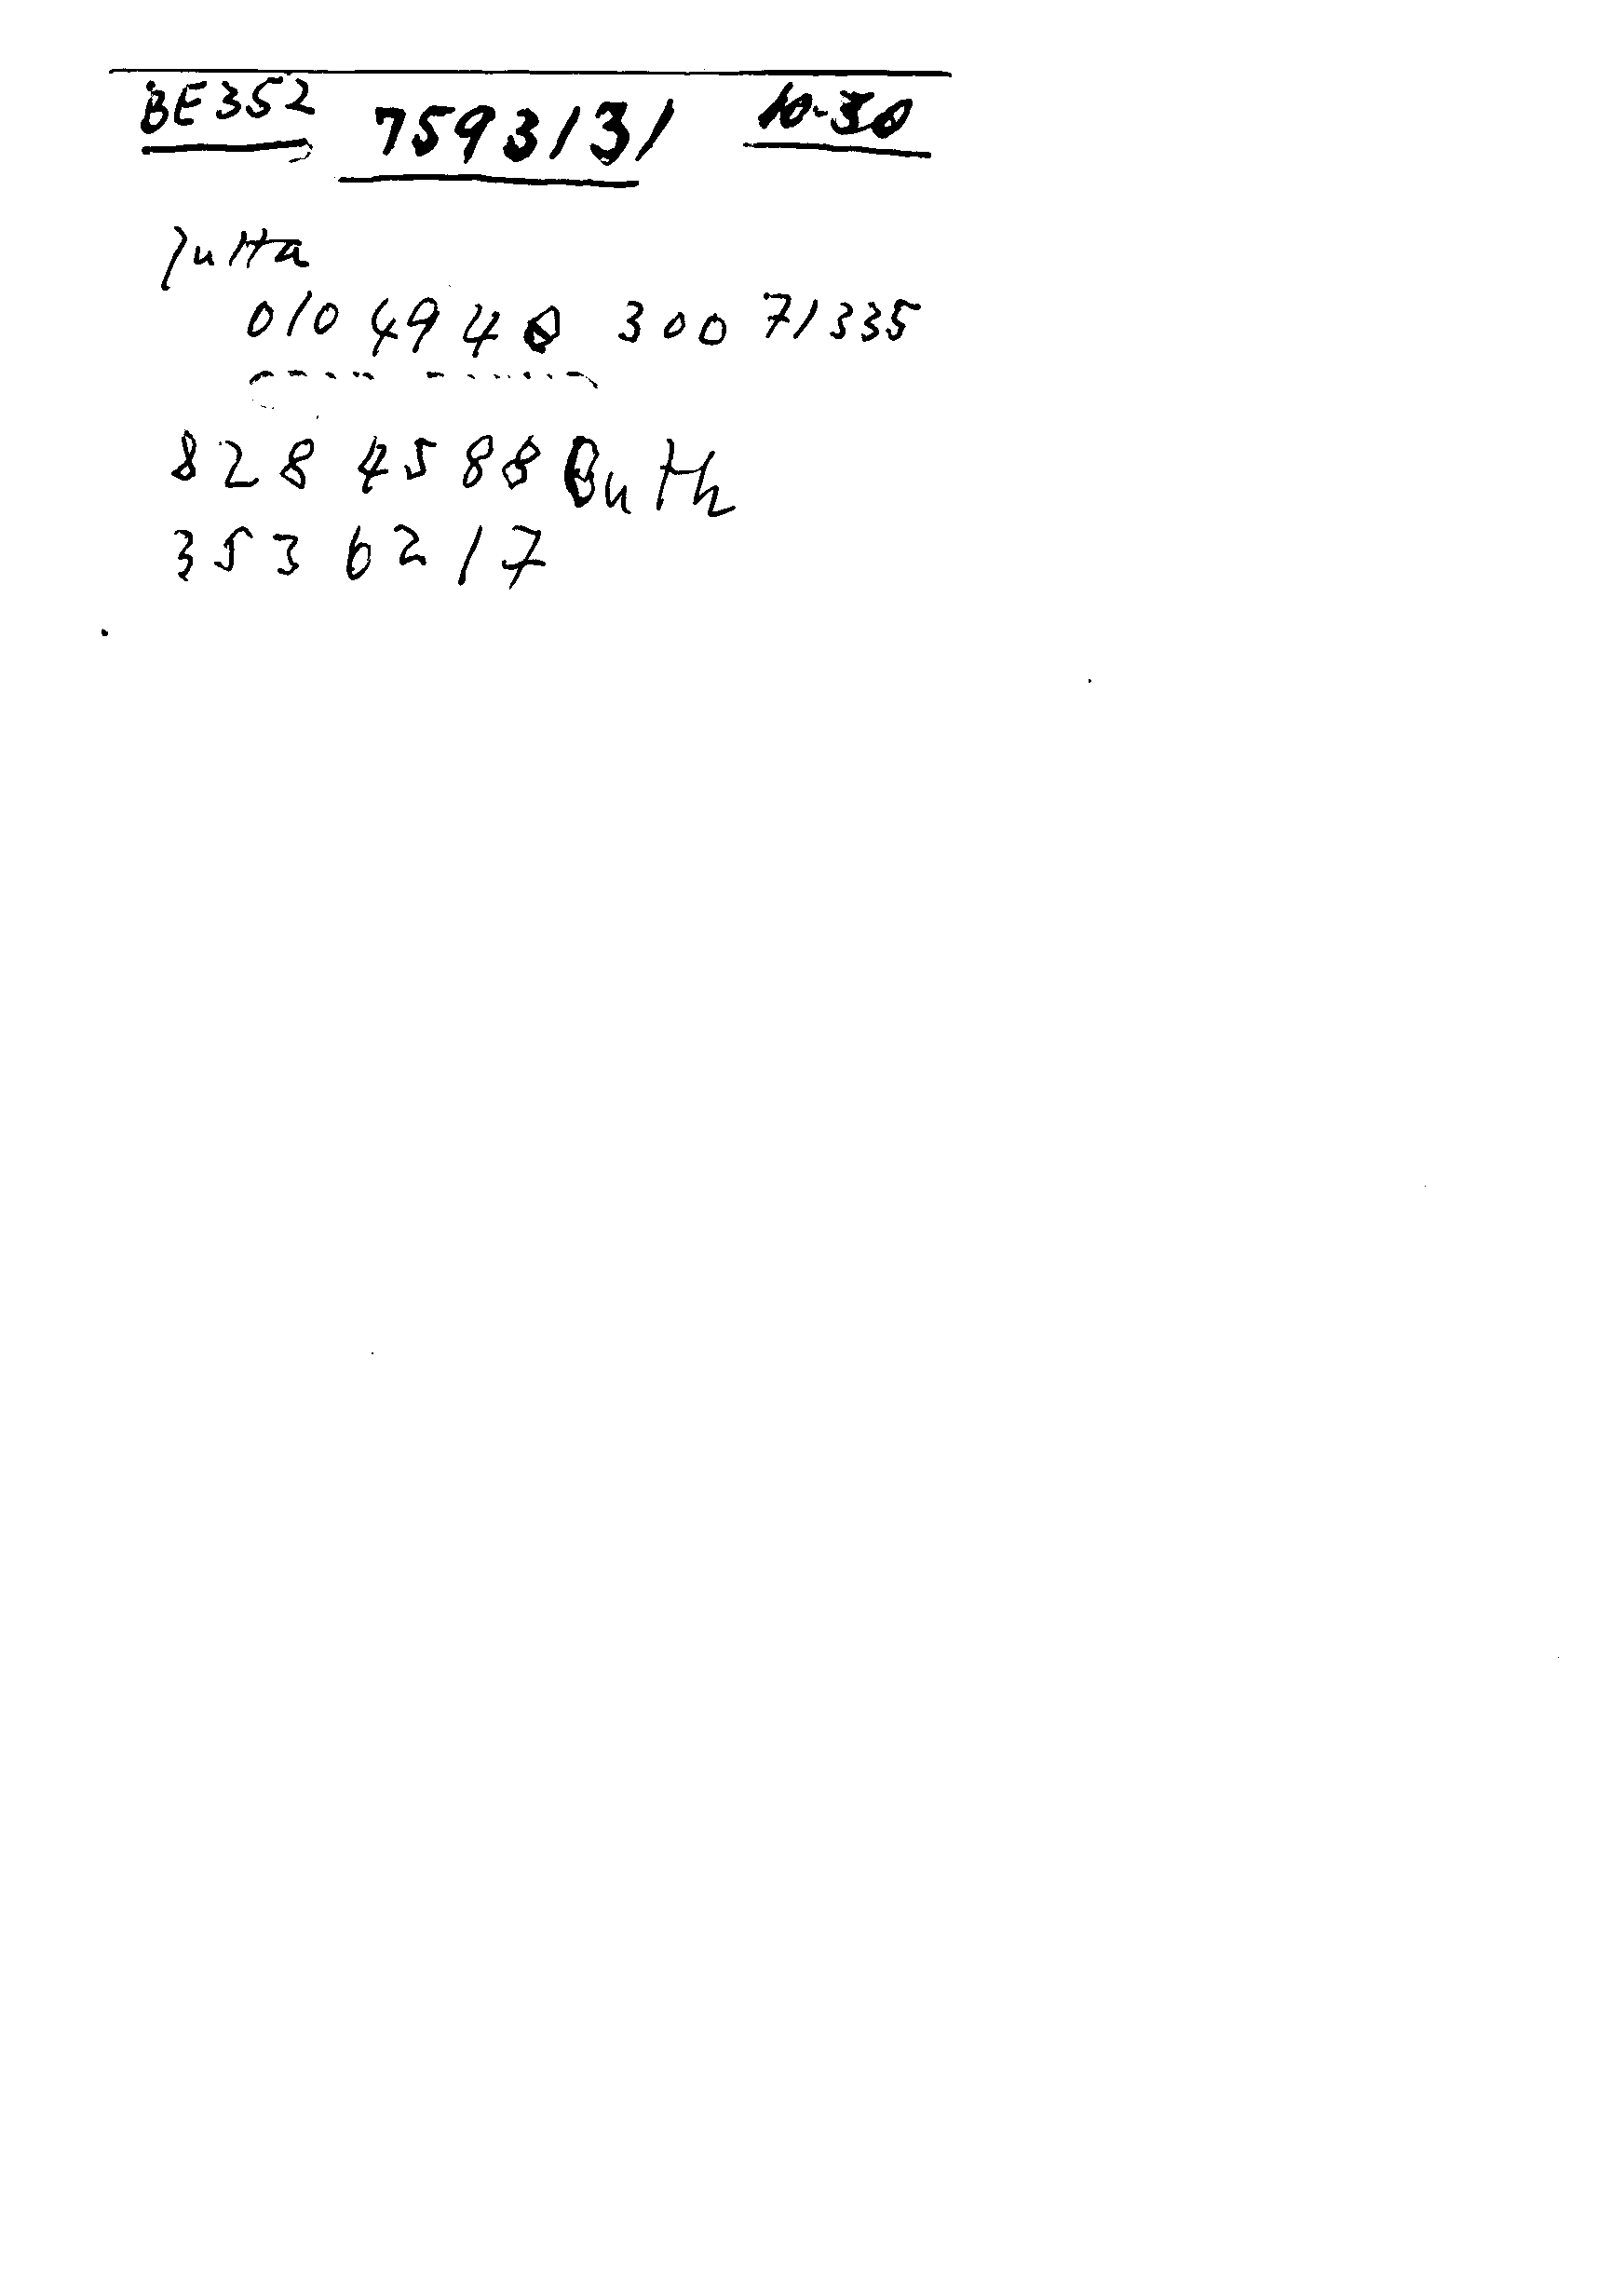 BE352 7593131 10-30
Jutta
010 49 40 300 71335
828 4588 Buth
353 6217